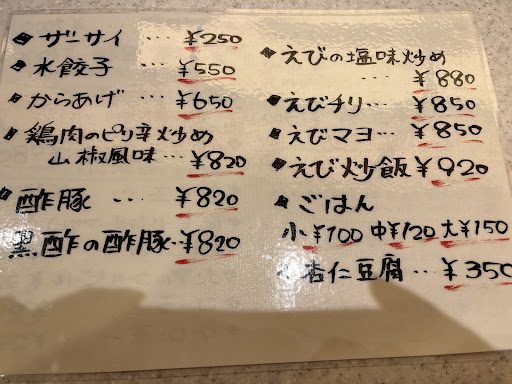 ザーサイ … ¥250
水餃子 … ¥550
からあげ … ¥650
鶏肉のピリ辛炒め
山椒風味… ¥820
酢豚 … ¥820
黒酢の酢豚‥¥820
えびの塩味炒め
… ¥880
えびチリ… ¥850
えびマヨ… ¥850
えび炒飯 ¥920
ごはん
小¥100 中¥120 大¥150
杏仁豆腐… ¥350